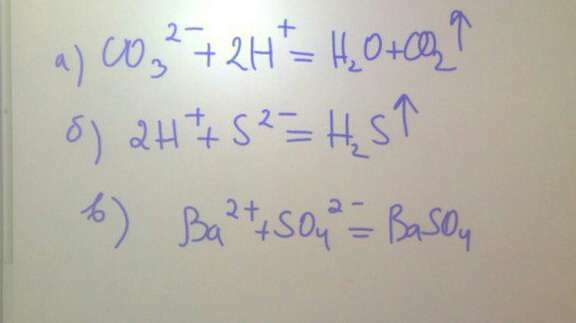 а) CO₃²⁻ + 2H⁺ = H₂O + CO₂↑
б) 2H⁺ + S²⁻ = H₂S↑
в) Ba²⁺ + SO₄²⁻ = BaSO₄